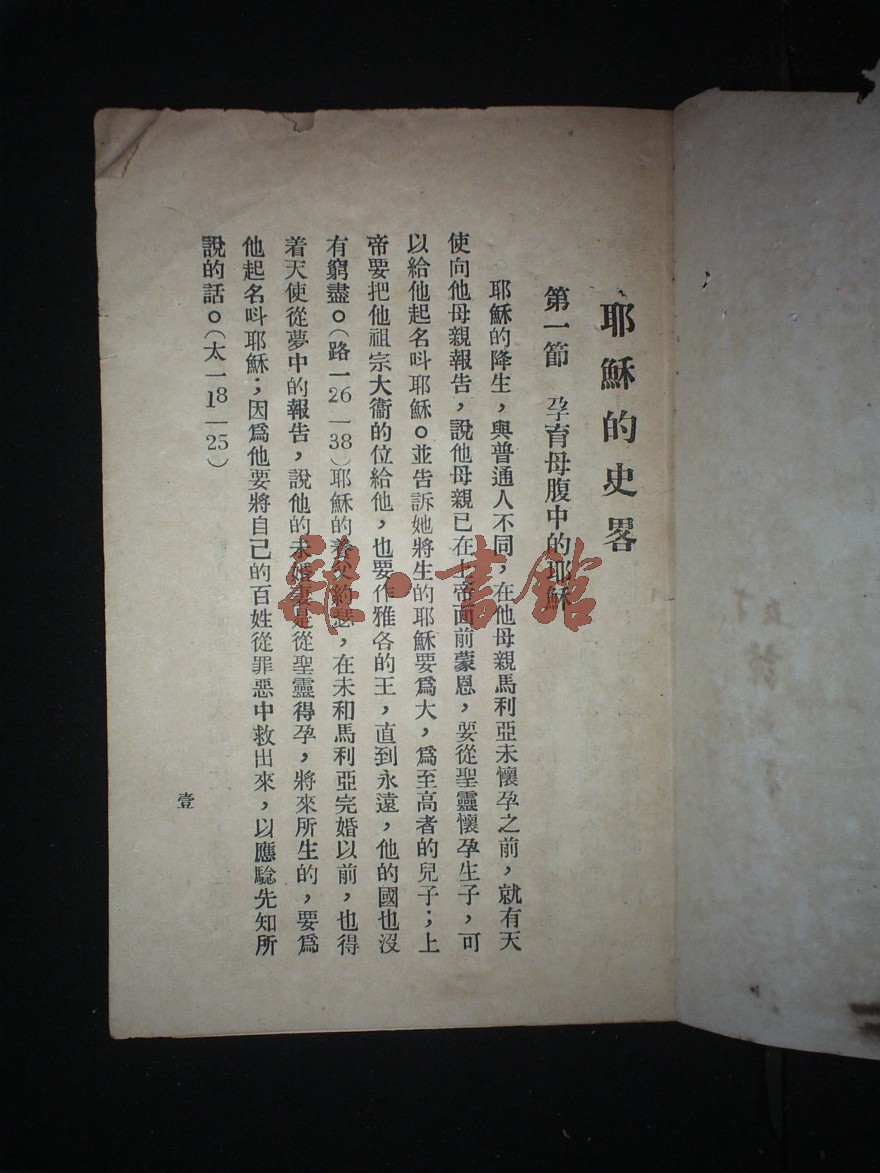 耶穌的史畧
第一節 孕育母腹中的耶穌
耶穌的降生，與普通人不同，在他母親馬利亞未懷孕之前，就有天
使向他母親報告，說他母親已在上帝面前蒙恩，要從聖靈懷孕生子，可
以給他起名呌耶穌。並告訴她將生的耶穌要爲大，爲至高者的兒子；上
帝要把他祖宗大衞的位給他，也要作雅各的王，直到永遠，他的國也沒
有窮盡。（路一26—38）耶穌的養父約瑟，在未和馬利亞完婚以前，也得
着天使從夢中的報告，說他的未婚妻是從聖靈得孕，將來所生的，要爲
他起名呌耶穌；因爲他要將自己的百姓從罪惡中救出來，以應驗先知所
說的話。（太一18—25）
壹
雜·書館